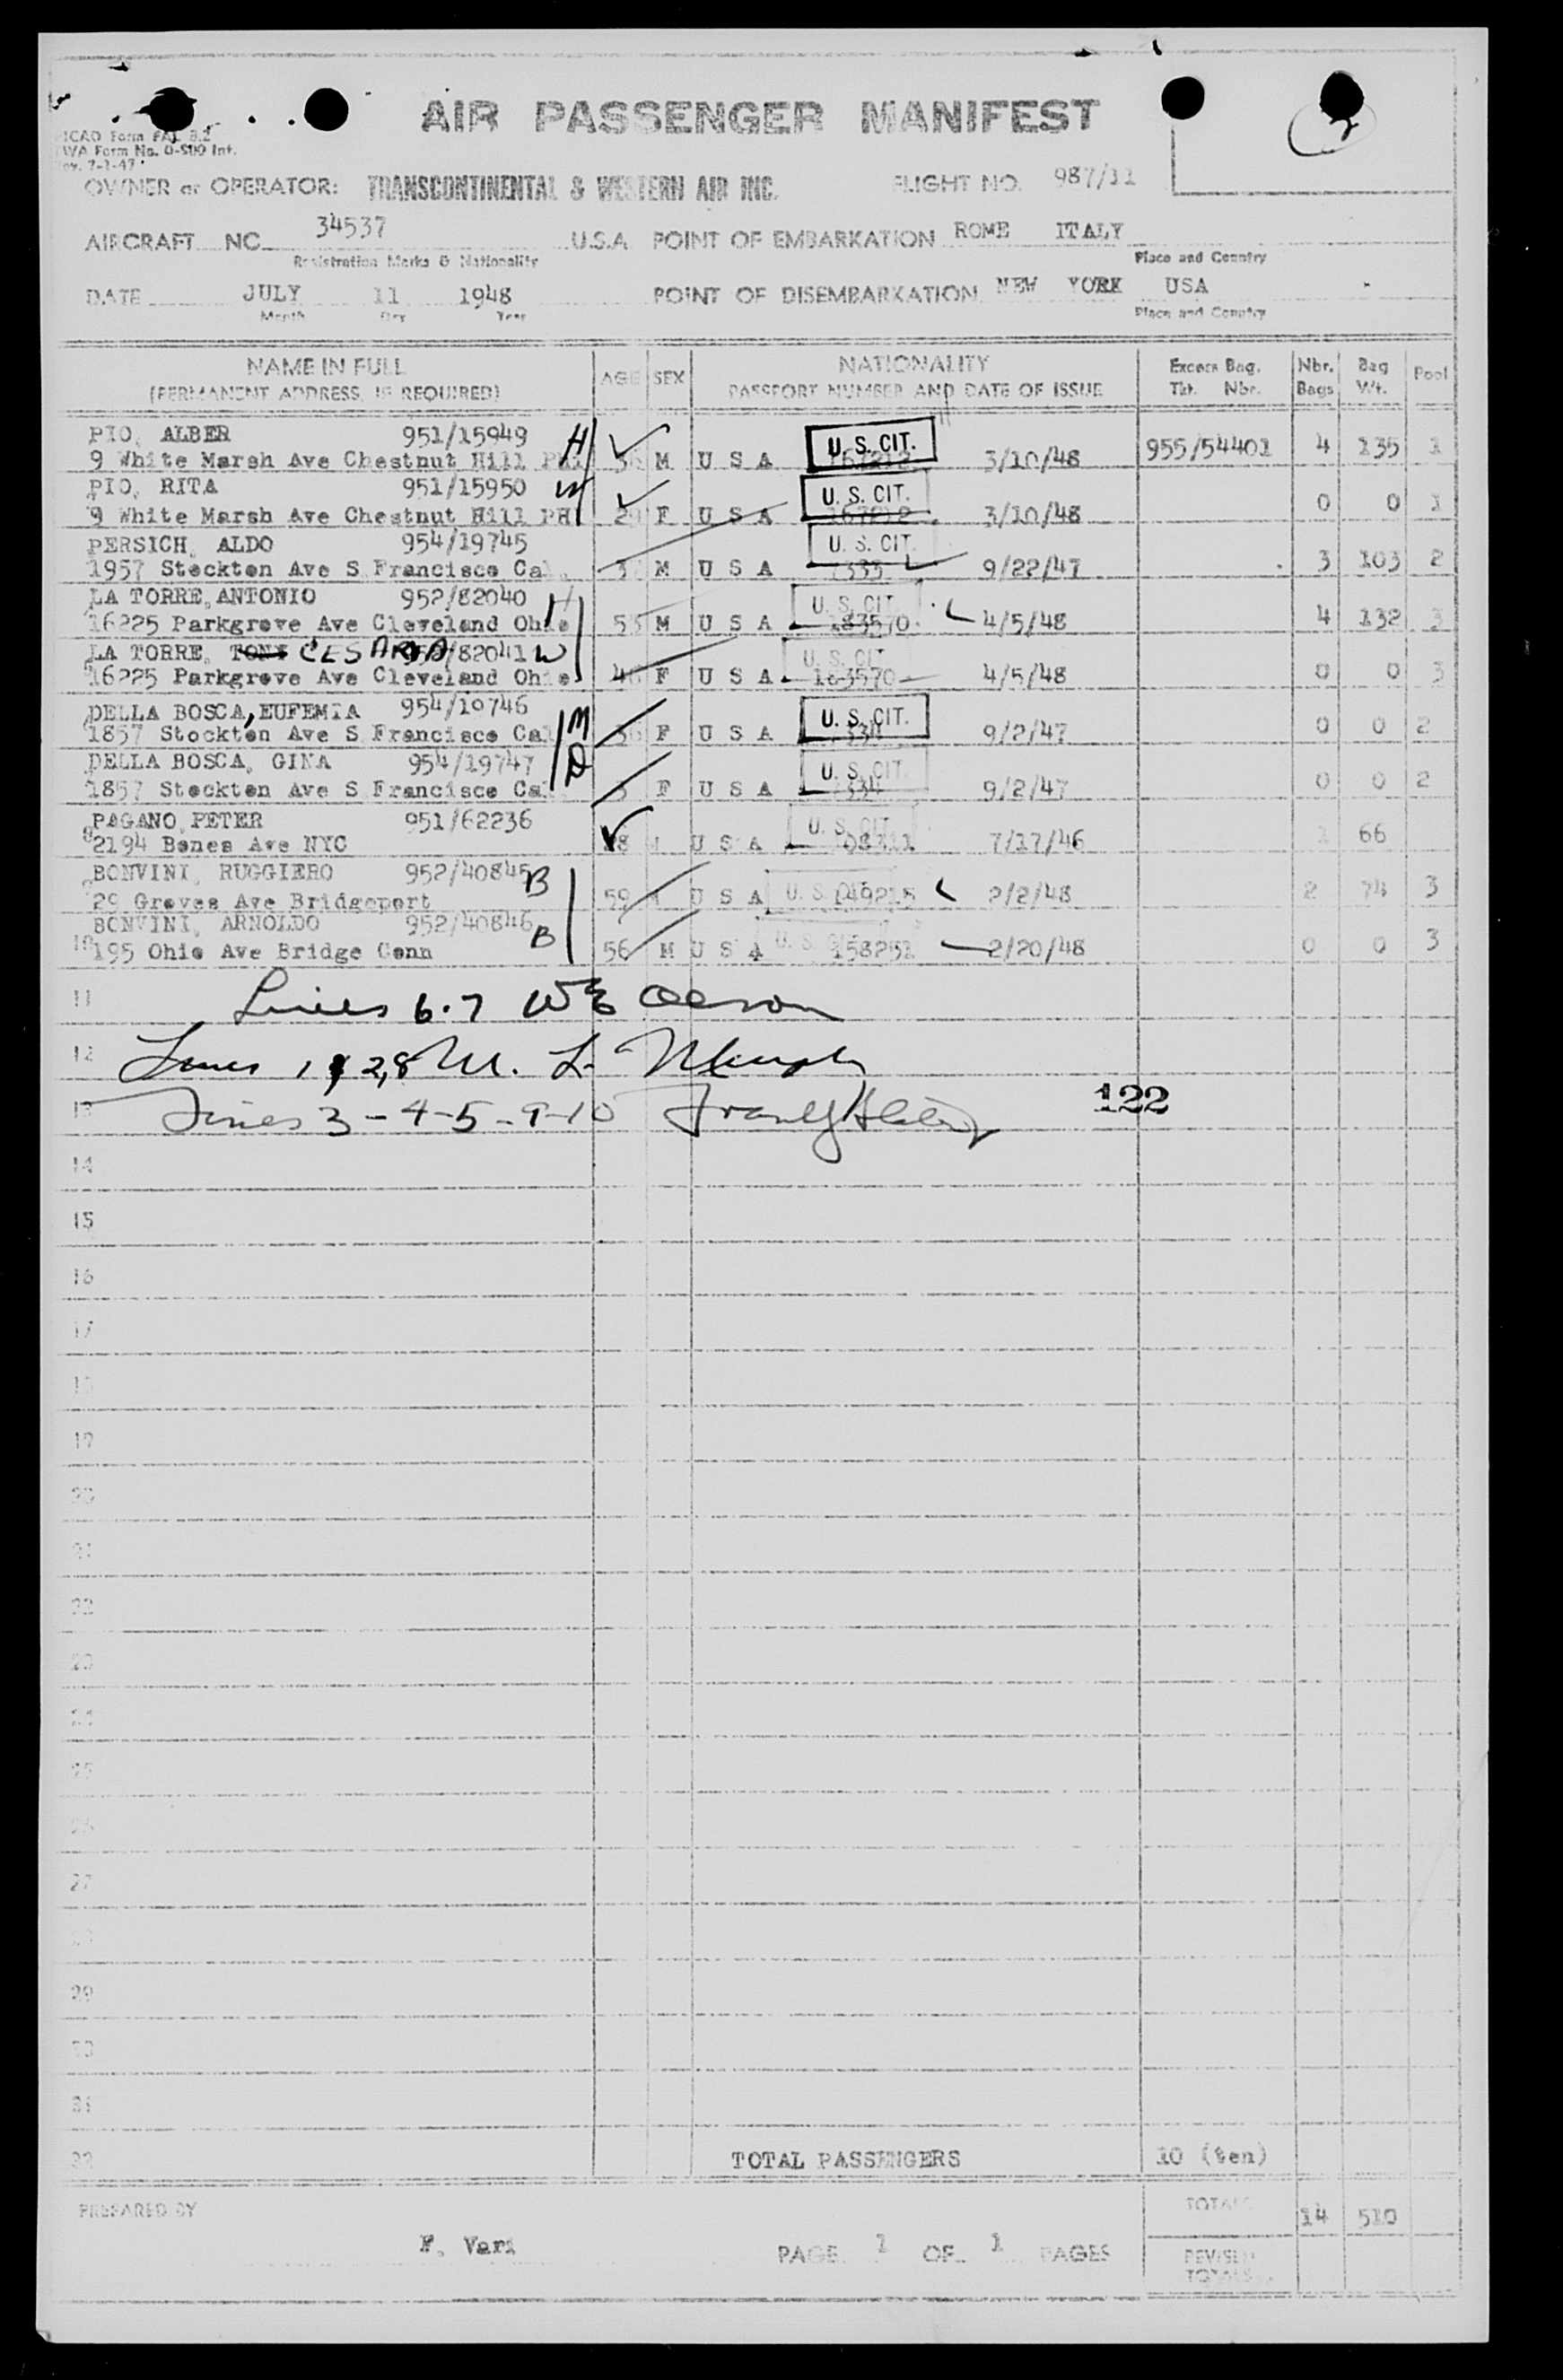 AIR PASSENGER MANIFEST
ICAO Form FAL 8.2
TWA Form No. 0-500 Int.
Rev. 7-1-47
OWNER or OPERATOR: TRANSCONTINENTAL & WESTERN AIR INC. FLIGHT NO. 987/11
AIRCRAFT NC 34537 U.S.A. POINT OF EMBARKATION ROME ITALY
Registration Marks & Nationality Place and Country
DATE JULY 11 1948 POINT OF DISEMBARKATION NEW YORK USA
Month Day Year Place and Country
NAME IN FULL AGE SEX NATIONALITY Excess Bag. Nbr. Bag Pool
(PERMANENT ADDRESS, IF REQUIRED) PASSPORT NUMBER AND DATE OF ISSUE Tkt. Nbr. Bags Wt.
PIO, ALBER 951/15949 H U. S. CIT.
9 White Marsh Ave Chestnut Hill M U S A 3/10/48 955/54401 4 135 1
PIO, RITA 951/15950 W U. S. CIT.
9 White Marsh Ave Chestnut Hill PH F U S A 3/10/48 0 0 1
PERSICH, ALDO 954/19745 U. S. CIT.
1957 Stockton Ave S Francisco Cal M U S A 7333 9/22/47 3 103 2
LA TORRE, ANTONIO 952/82040 H U. S. CIT.
16225 Parkgrove Ave Cleveland Ohio 53 M U S A 183570 4/5/48 4 132 3
LA TORRE, TONY CESARIA /82041 W U. S. CIT
16225 Parkgrove Ave Cleveland Ohio F U S A 183570 4/5/48 0 0 3
DELLA BOSCA, EUFEMIA 954/19746 M U. S. CIT.
1857 Stockton Ave S Francisco Cal F U S A 9/2/47 0 0 2
DELLA BOSCA, GINA 954/19747 D U. S. CIT.
1857 Stockton Ave S Francisco Cal 3 F U S A 9/2/47 0 0 2
PAGANO, PETER 951/62236 U. S. CIT.
8 2194 Bones Ave NYC U S A 7/17/46 1 66
BONVINI, RUGGIERO 952/40845 B
29 Groves Ave Bridgeport 59 U S A U. S. 2/2/48 2 74 3
BONVINI, ARNOLDO 952/40846 B
10 195 Ohio Ave Bridge Conn 56 M U S A 158251 2/20/48 0 0 3
11 Lines 6.7 Olson
12 Lines 1 & 2, 8 M. L. Murphy
13 Lines 3 - 4 - 5 - 9 - 10 122
14
15
16
17
18
19
20
21
22
23
24
25
26
27
28
29
30
31
32 TOTAL PASSENGERS 10 (ten)
PREPARED BY TOTALS 14 510
F. Vari PAGE 1 OF 1 PAGES REVISED
TOTALS